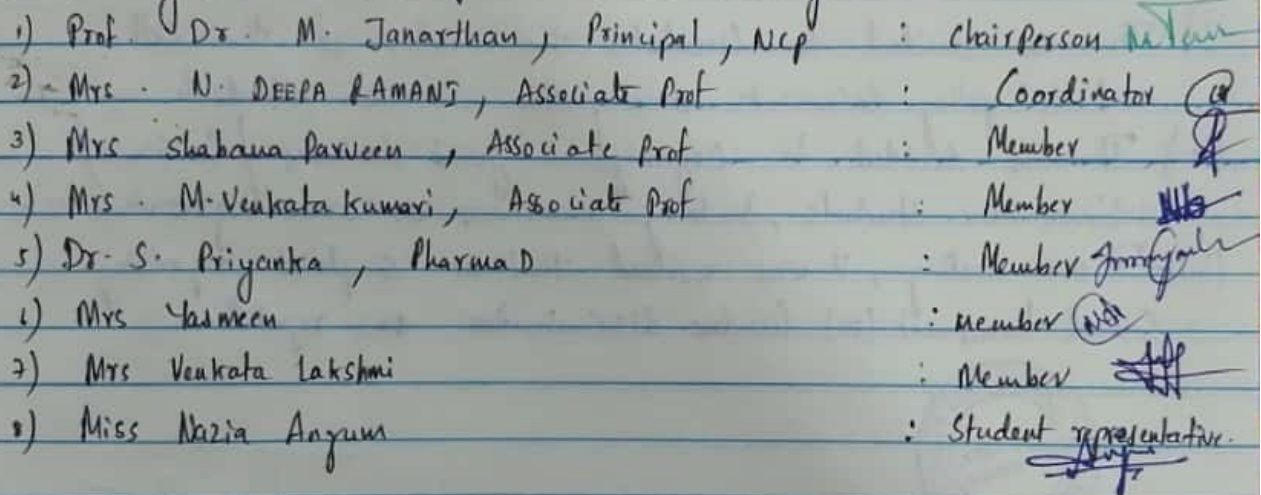 1) Prof. Dr. M. Janarthan, Principal, NCP : Chairperson
2) Mrs. N. DEEPA RAMANI, Associate Prof : Coordinator
3) Mrs Shabana Parveen, Associate Prof : Member
4) Mrs. M. Venkata Kumari, Associate Prof : Member
5) Dr. S. Priyanka, Pharma D : Member
6) Mrs Yasmeen : Member
7) Mrs Venkata Lakshmi : Member
8) Miss Nazia Anjum : Student representative.